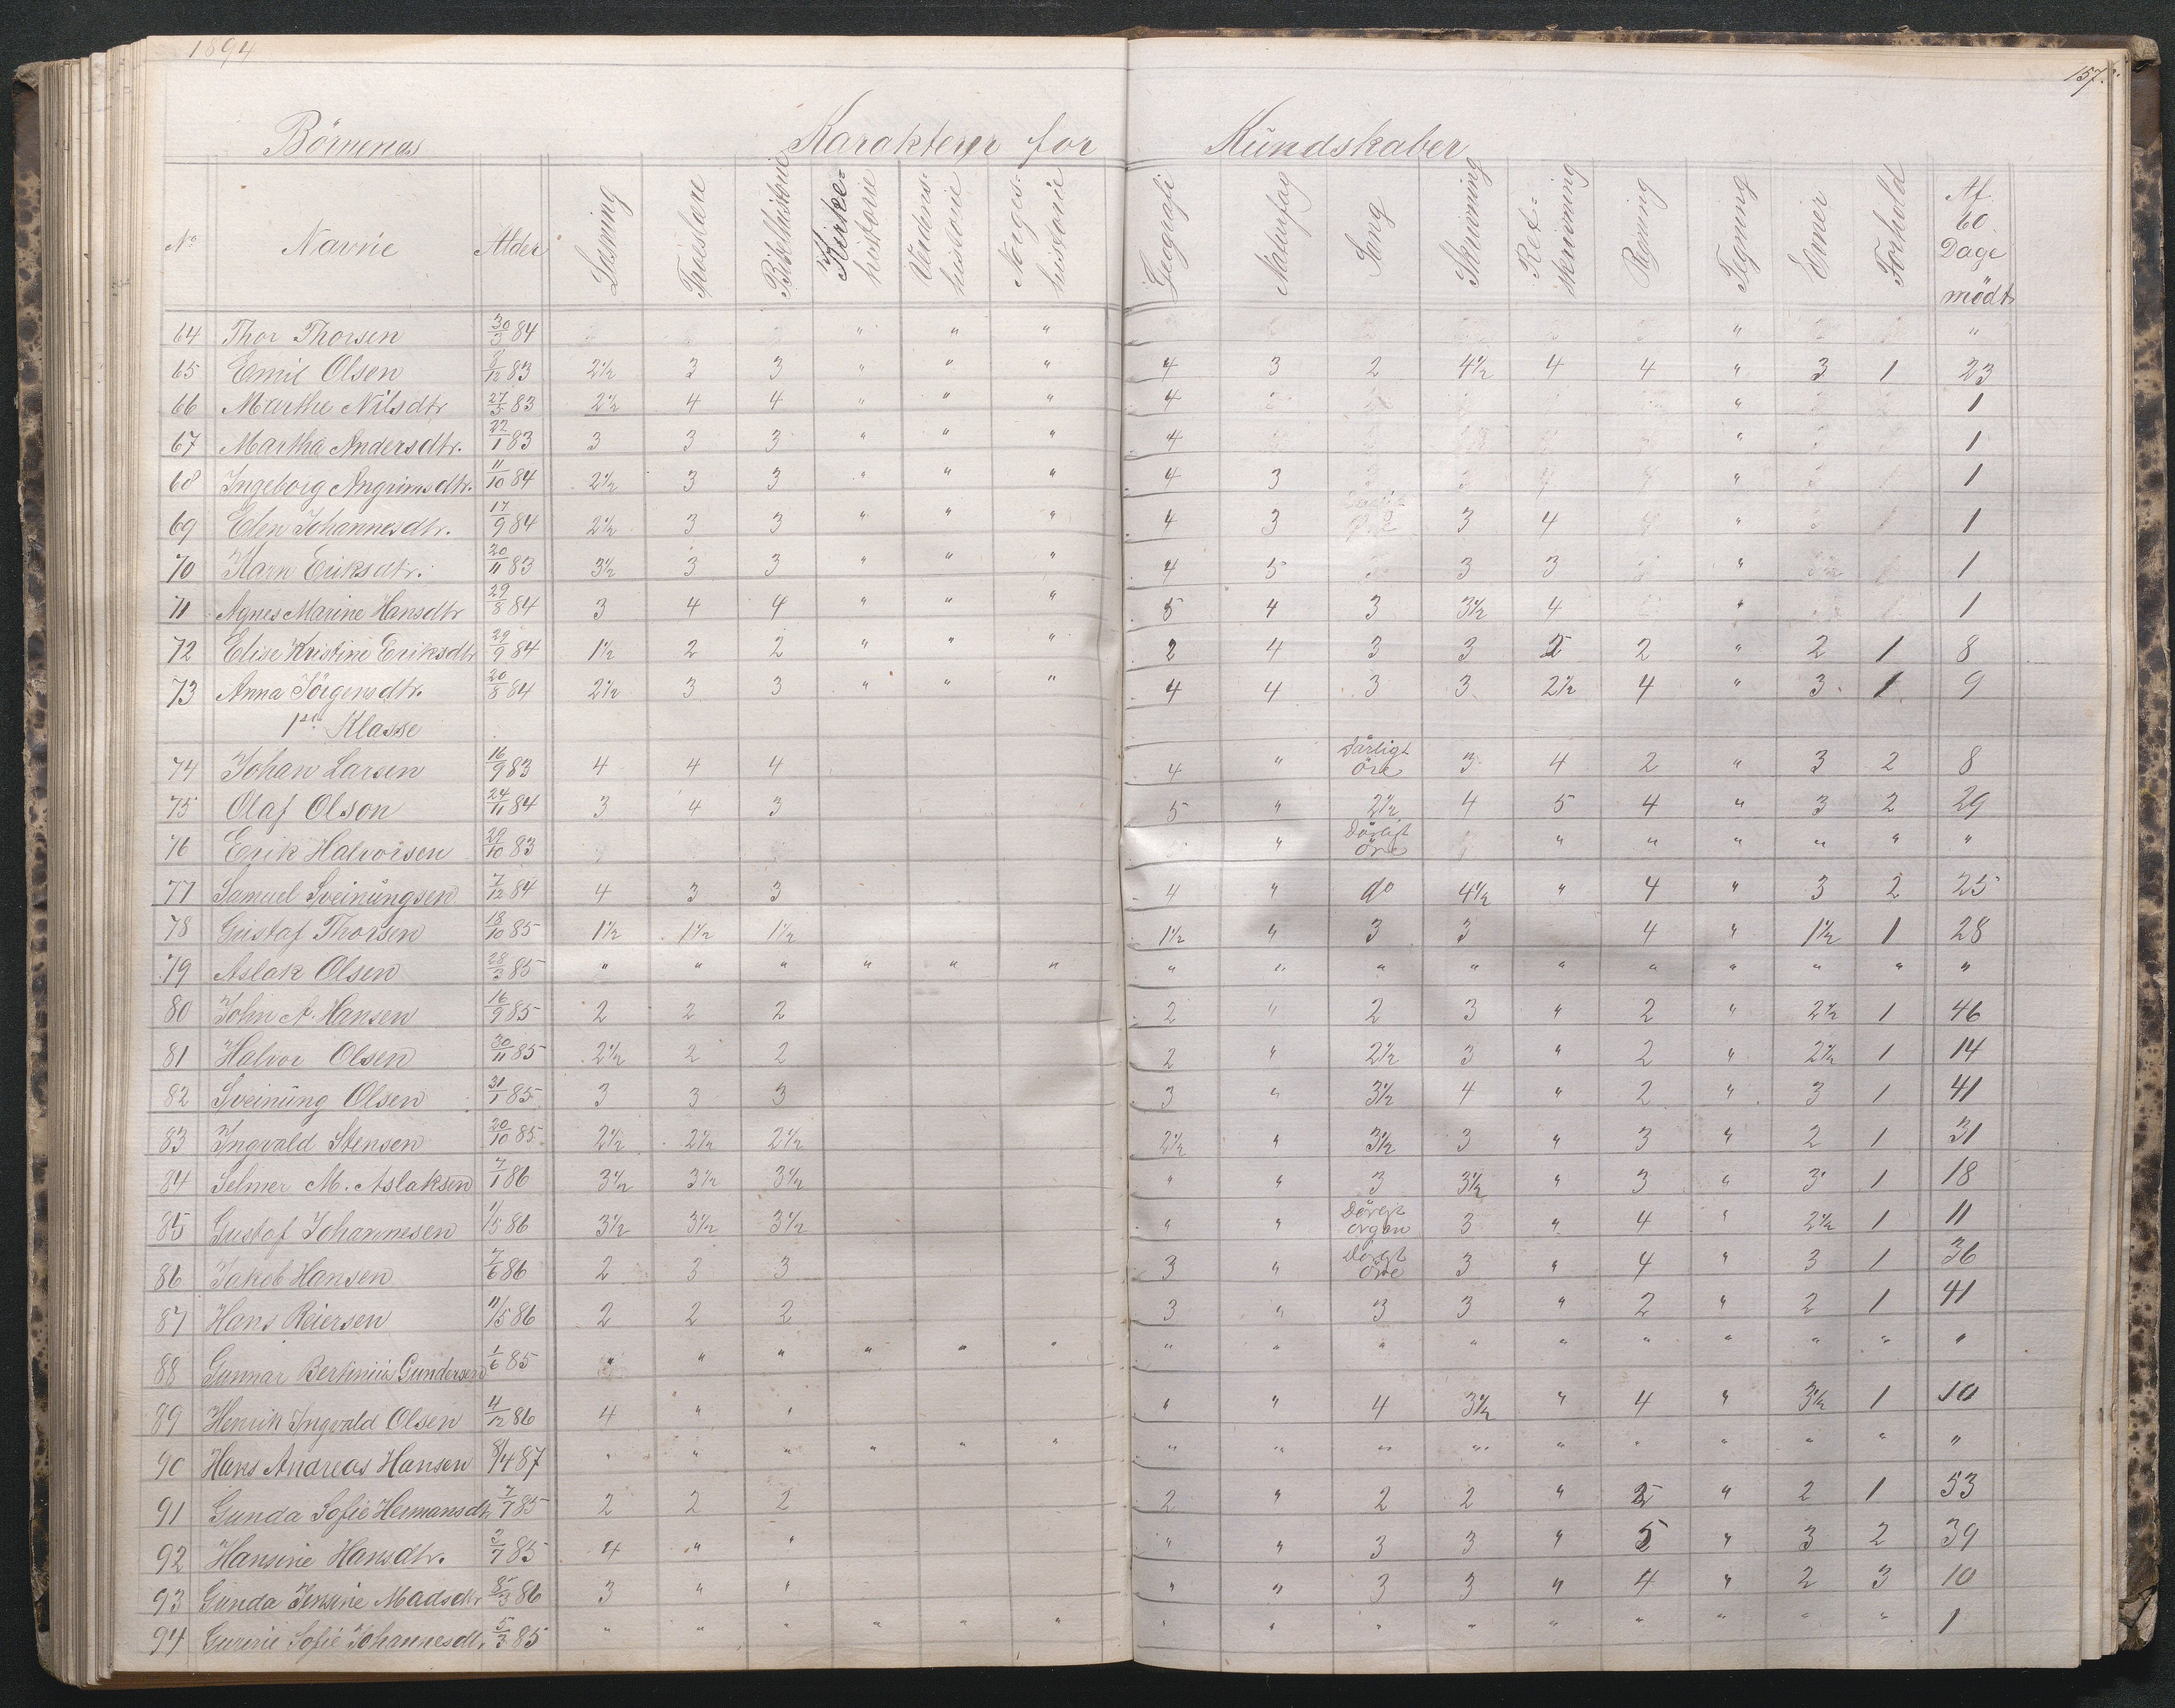 1894
157.
Börnenes Karakterer for Kundskaber
No Navne Alder Læsning Troeslære Bibelhistorie Kirke-historie Verdens-historie Norges-historie Geografi Naturfag Sang Skrivning Ret-skrivning Regning Tegning Evner Forhold Af 60 Dage mödt
64 Thor Thorsen 30/3 84 " " " " "
65 Emil Olsen 8/12 83 2½ 3 3 " " " 4 3 2 4½ 4 4 " 3 1 23
66 Marthe Nilsdtr 27/5 83 2½ 4 4 " " " 4 " 1
67 Martha Andersdtr. 22/1 83 3 3 3 " " " 4 " 1
68 Ingeborg Angrimsdtr. 11/10 84 2½ 3 3 " " " 4 3 " 1
69 Elen Johannesdtr. 17/9 84 2½ 3 3 " " " 4 3 3 4 " 1
70 Karn Eriksdtr. 20/11 83 3½ 3 3 " " " 4 5 3 3 " 1
71 Agnes Marine Hansdtr 29/8 84 3 4 4 " " " 5 4 3 3½ 4 " 1
72 Elise Kristine Eriksdtr 29/9 84 1½ 2 2 " " " 2 4 3 3 2 " 2 1 8
73 Anna Jörgensdtr. 20/8 84 2½ 3 3 " " " 4 4 3 3 2½ 4 " 3 1 9
1ste Klasse
74 Johan Larsen 16/9 83 4 4 4 4 " Dårligt öre 3 4 2 " 3 2 8
75 Olaf Olson 24/11 84 3 4 3 5 " 2½ 4 5 4 " 3 2 29
76 Erik Halvorsen 29/10 83 " Dårligt öre " " " " " "
77 Samuel Sveinüngsen 7/12 84 4 3 3 4 " do 4½ " 4 " 3 2 25
78 Gustaf Thorsen 18/10 85 1½ 1½ 1½ 1½ " 3 3 4 " 1½ 1 28
79 Aslak Olsen 28/3 85 " " " " " " " " " " " " " " " "
80 John A. Hansen 16/9 85 2 2 2 2 " 2 3 " 2 " 2½ 1 46
81 Halvor Olsen 30/11 85 2½ 2 2 2 " 2½ 3 " 2 " 2½ 1 14
82 Sveinüng Olsen 31/1 85 3 3 3 3 " 3½ 4 " 2 " 3 1 41
83 Ingvald Stensen 20/10 85 2½ 2½ 2½ 2½ " 3½ 3 " 3 " 2 1 31
84 Selmer M. Aslaksen 7/1 86 3½ 3½ 3½ " " 3 3½ " 3 " 3 1 18
85 Gustaf Johannesen 1/5 86 3½ 3½ 3½ " " Dårligt organ 3 " 4 " 2½ 1 11
86 Jakob Hansen 7/6 86 2 3 3 3 " Dårgt öre 3 " 4 " 3 1 36
87 Hans Reiersen 11/5 86 2 2 2 3 " 3 3 " 2 " 2 1 41
88 Gunnar Bertinius Gundersen 1/6 85 " " " " " " " " " " " " " " " "
89 Henrik Ingvald Olsen 4/12 86 4 " " " " 4 3½ " 4 " 3½ 1 10
90 Hans Andreas Hansen 8/4 87 " " " " " " " " " " " " " " " "
91 Gunda Sofie Hermansdtr 7/7 85 2 2 2 2 " 2 2 " " 2 1 53
92 Hansine Hansdtr. 2/7 85 4 " " " " 3 3 " 5 " 3 2 39
93 Gunda Jensine Madsdtr 8/3 86 3 " " " " 3 3 " 4 " 2 3 10
94 Gurine Sofie Johannesdtr. 5/3 85 " " " " " " " " " " " " " " " 1